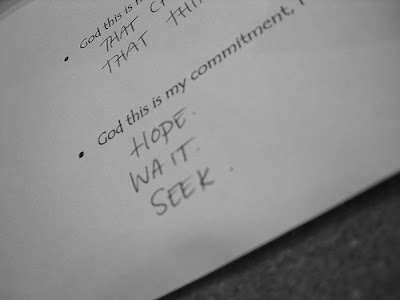 God this is
THAT
THAT THI
God this is my commitment,
HOPE.
WAIT.
SEEK.